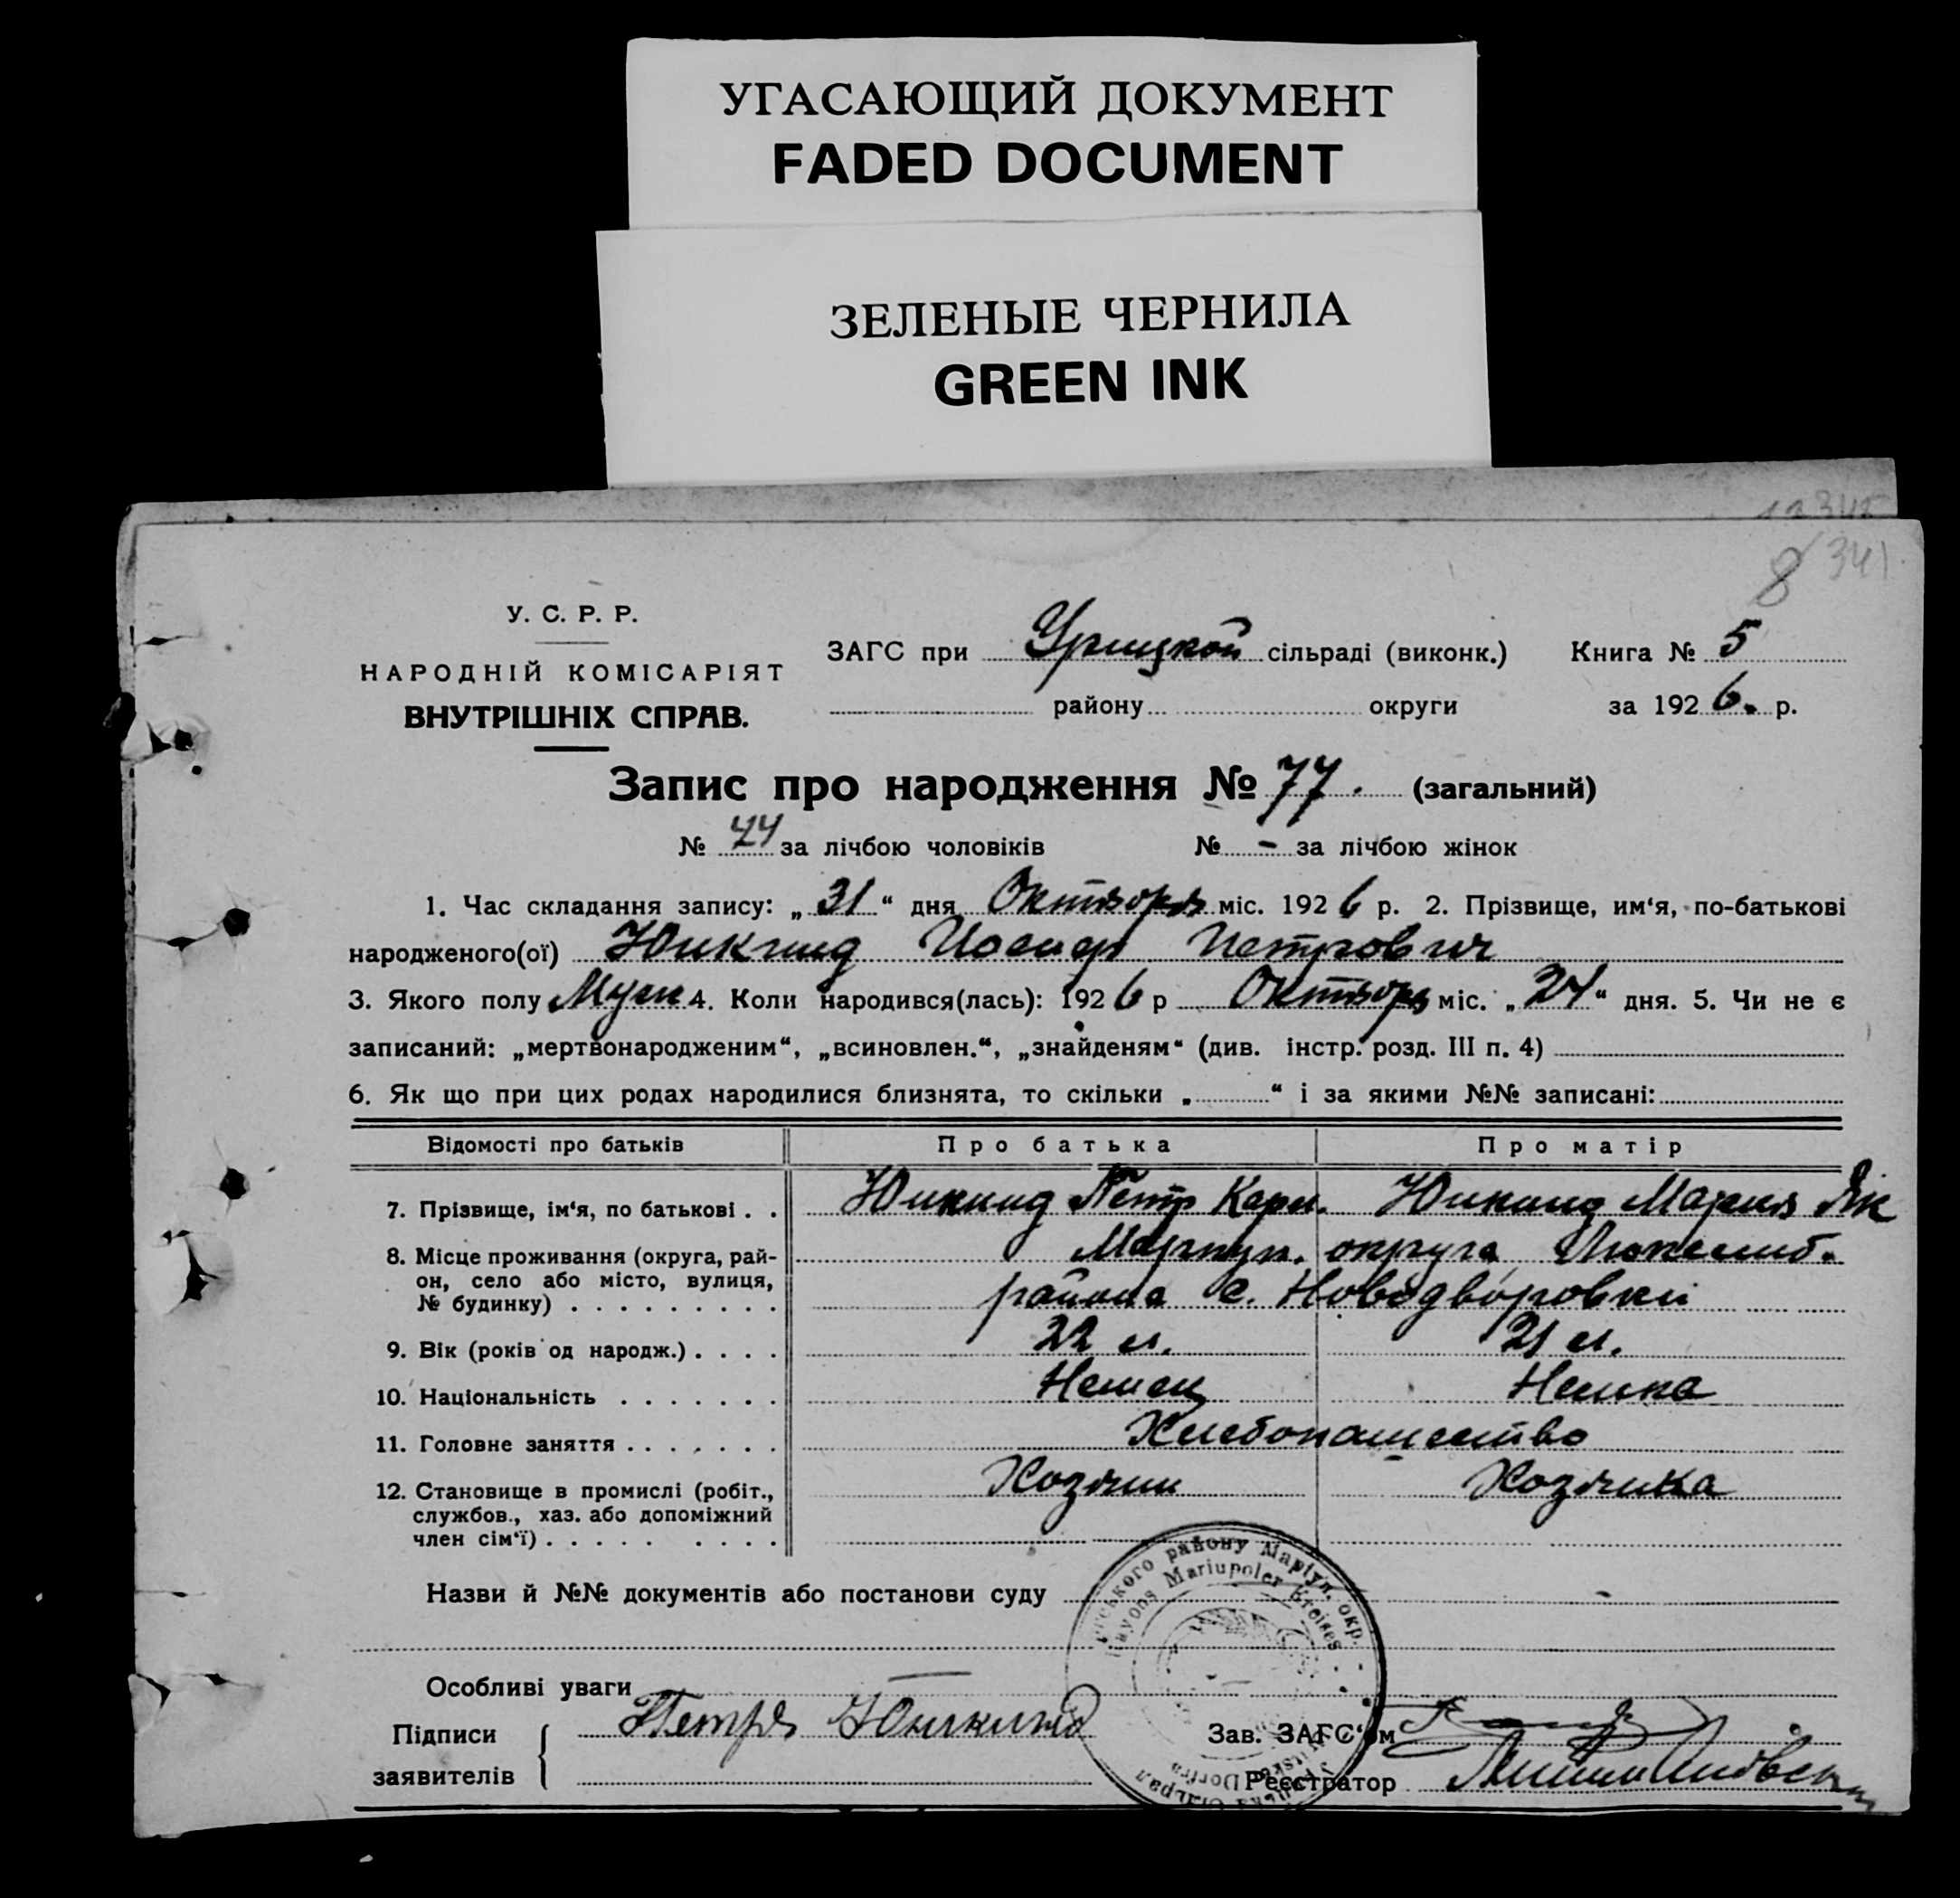 УГАСАЮЩИЙ ДОКУМЕНТ
FADED DOCUMENT
ЗЕЛЕНЫЕ ЧЕРНИЛА
GREEN INK
8 341
У. С. Р. Р.
НАРОДНІЙ КОМІСАРІЯТ
ВНУТРІШНІХ СПРАВ.
ЗАГС при Урицкой сільраді (виконк.) Книга № 5
району округи за 1926. р.
Запис про народження № 77. (загальний)
№ 44 за лічбою чоловіків № - за лічбою жінок
1. Час складання запису: „31“ дня Октября міс. 1926 р. 2. Прізвище, им‘я, по-батькові
народженого(ої) Юнкинд Иосиф Петрович
3. Якого полу Муж 4. Коли народився(лась): 1926 р Октября міс. „24“ дня. 5. Чи не є
записаний: „мертвонародженим“, „всиновлен.“, „знайденям“ (див. інстр. розд. III п. 4)
6. Як що при цих родах народилися близнята, то скільки „ “ і за якими №№ записані:
Відомості про батьків Про батька Про матір
7. Прізвище, ім‘я, по батькові . . Юнкинд Петр Карл. Юнкинд Мария Як
8. Місце проживання (округа, рай- Мариуп. округа Люксемб.
он, село або місто, вулиця,
№ будинку) . . . . . . . . . района с. Новодворовки
9. Вік (років од народж.) . . . . 22 л. 21 л.
10. Національність . . . . . . . Немец Немка
11. Головне заняття . . . . . . . Хлебопашество
12. Становище в промислі (робіт., Хозяин Хозяйка
службов., хаз. або допоміжний
член сім‘ї) . . . . . . . . .
Назви й №№ документів або постанови суду -
району Маріуп. окр.
Rayons Mariupoler Kreises
Особливі уваги
Підписи Петръ Юнкинд Зав. ЗАГС‘ом
заявителів Реєстратор